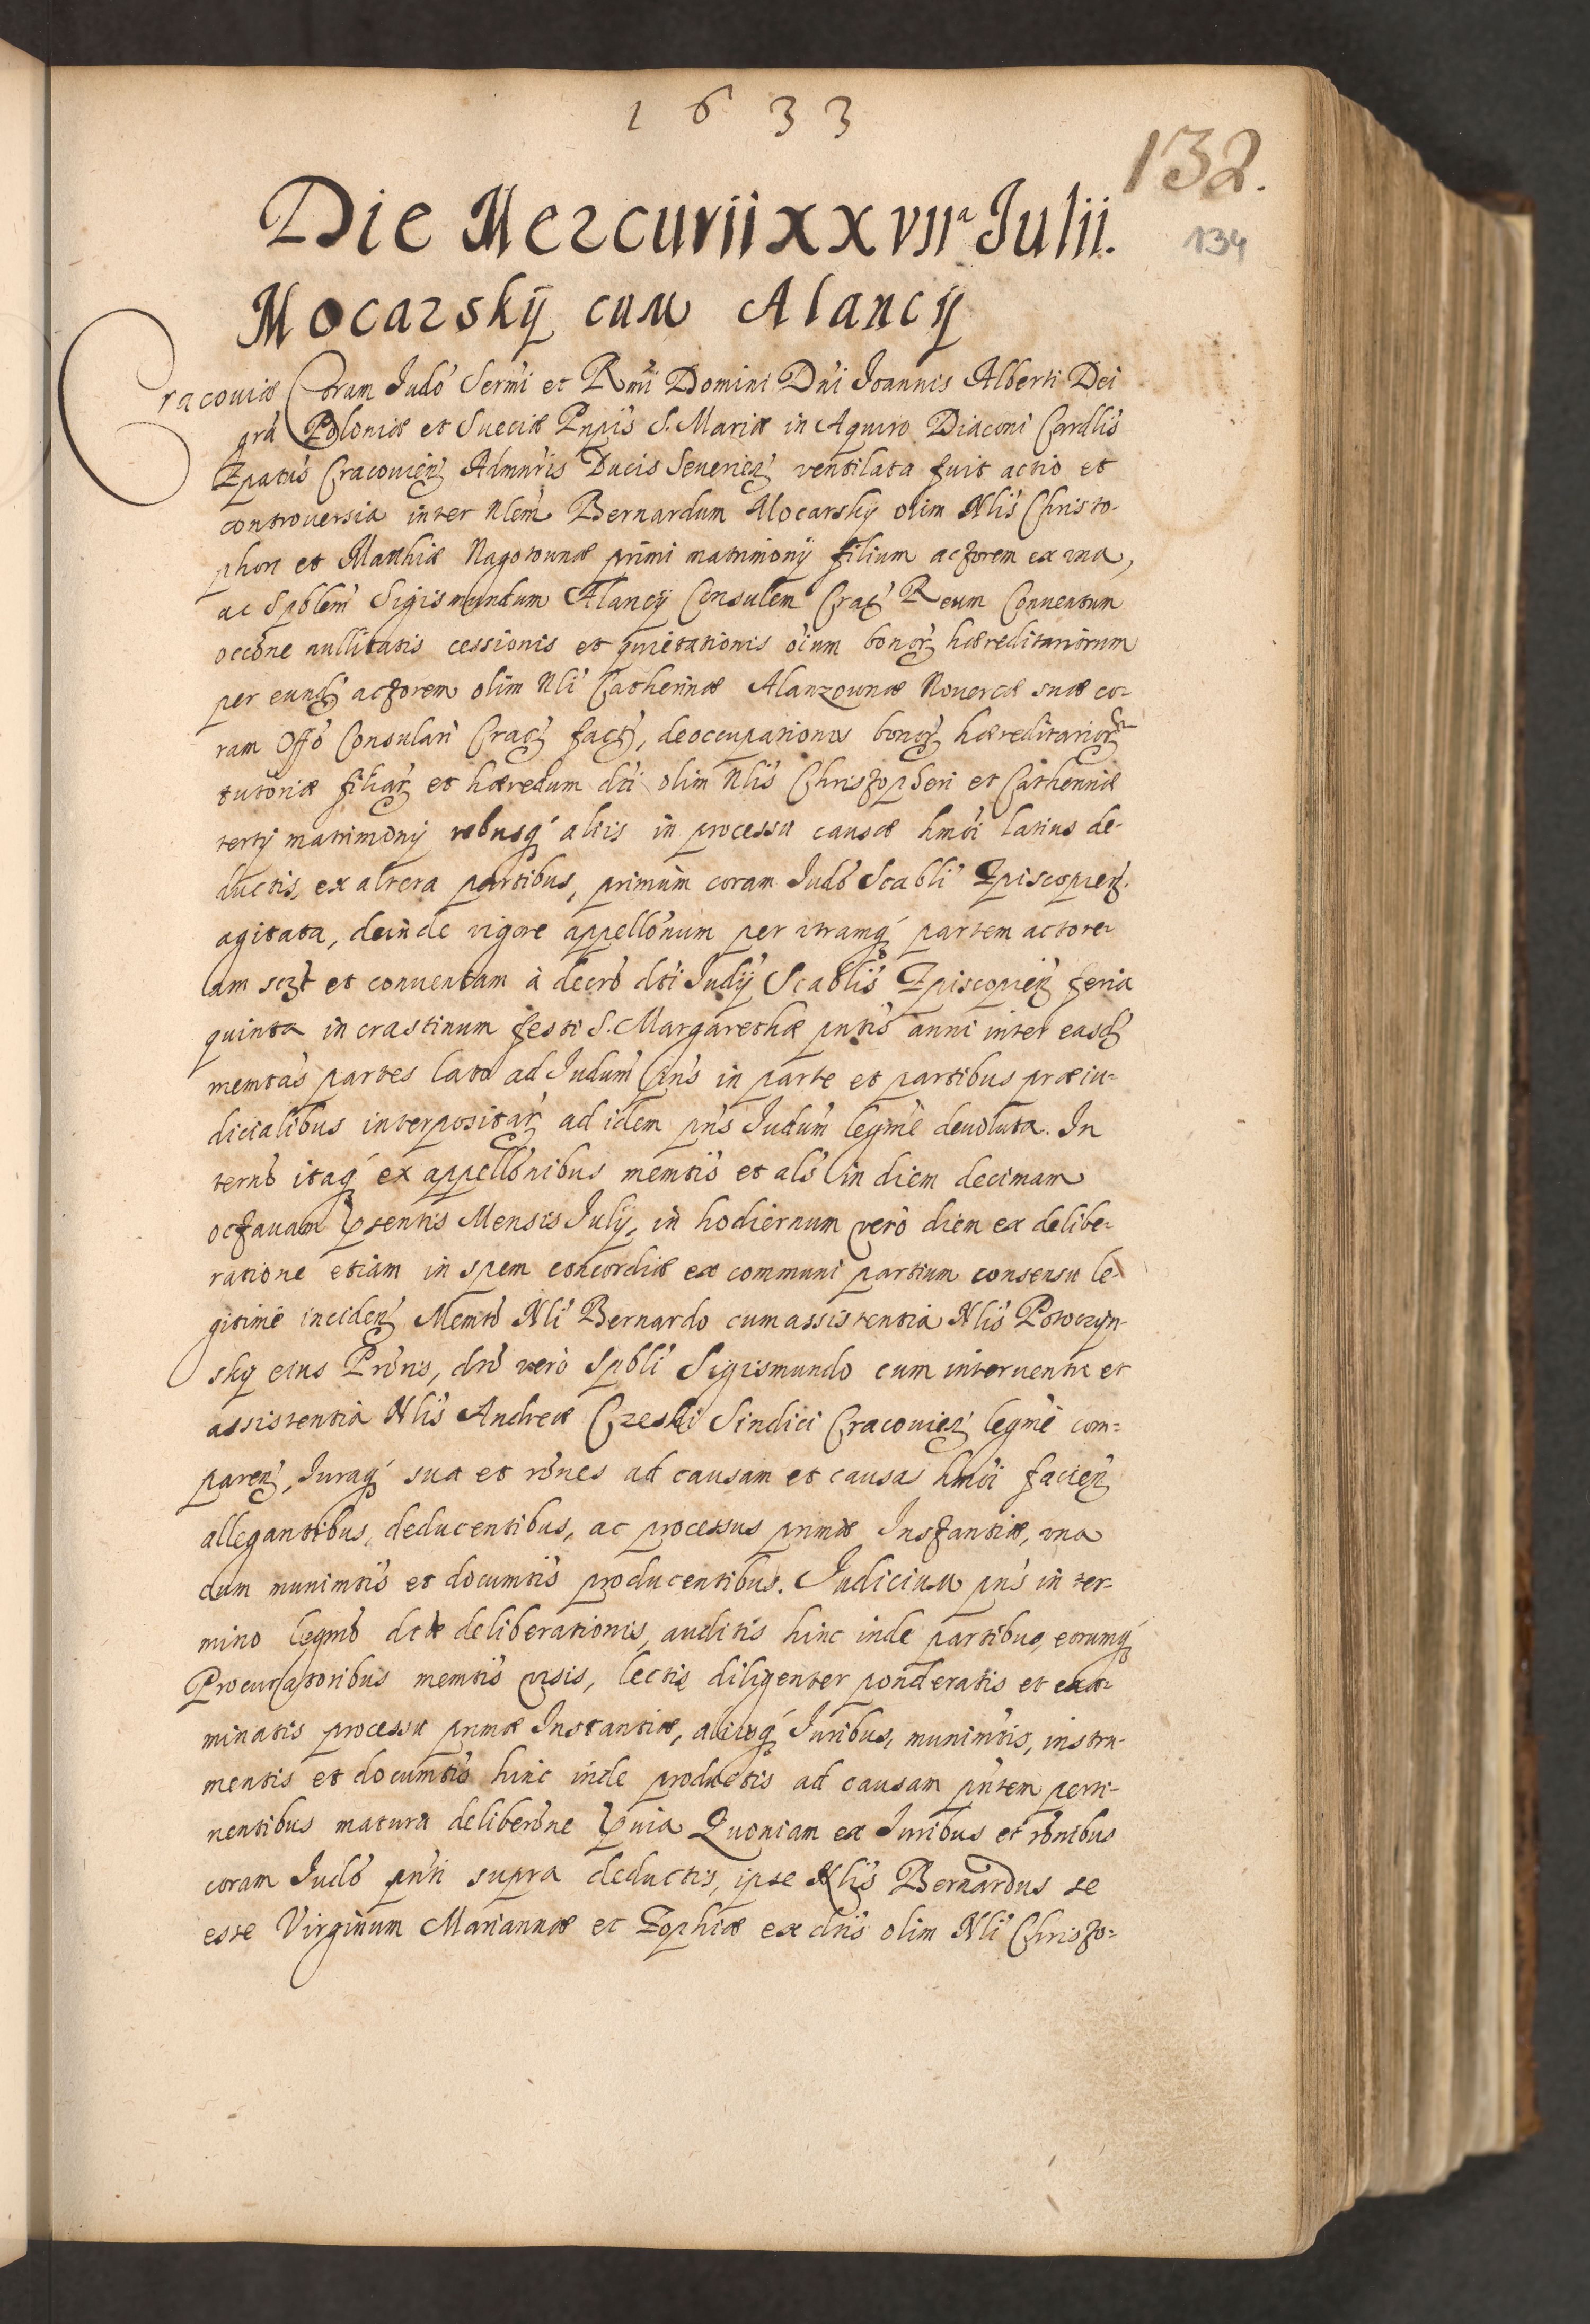 1633
132.
134
Die Mercurii xxvii^a Julii.
Mocarskÿ cum Alancÿ
Cracoviæ Coram Judő Sermi et Rmi Domini Dni Joannis Alberti Dei
gra Poloniæ et Sueciæ Pnpis S. Mariæ in Aquiro Diaconi Cardlis
Epatus Cracovien Admnris Ducis Severien ventilata fuit actio et
controversia inter Nlem Bernardum Mocarskÿ olim Nlis Christo-
phori et Nagotownæ primi matrimonÿ filium actorem ex una,
ac Spblem Sigismundum Alancÿ Consulem Crac Reum Conventum
occone nullitatis cessionis et quietationis oium bonor hæreditariorum
per eund actorem olim Nli Catherinæ Alanzownæ Novercæ suæ co-
ram Offo Consulari Crac fact, de occupationis bonor hæreditarior
tutoriæ filiar et hæredum dti olim Nlis Christopheri et Catherinæ
tertÿ matrimonÿ rebusq aliis in processu causæ hmoi latius de-
ductis, ex altera partibus, primum coram Judo Scabli Episcopien.
agitata, deinde vigore appellonum per utramq partem actore-
am sczt et conventam à decro dti Judÿ Scablis Episcopien feria
quinta in crastinum festi S. Margarethæ pntis anni inter easd
memtas partes lato ad Judum pns in parte et partibus præiu-
dicialibus interpositar ad idem pns Judum legme devoluta. In
terno itaq ex appellonibus memtis et als in diem decimam
octavam Psentis Mensis Julÿ, in hodiernum vero diem ex delibe-
ratione etiam in spem concordiæ ex communi partium consensu le-
gitime inciden Memto Nli Bernardo cum assistentia Nlis Potoczyn-
skÿ eius Prcnis, dto vero Spbli Sigismundo cum interventu et
assistentia Nlis Andreæ Czeski Sindici Cracovien legme com-
paren, Juraq sua et rones ad causam et causas hmoi facien
allegantibus, deducentibus, ac processus primæ Instantiæ, una
cum munimtis et documtis producentibus. Judicium pns in ter-
mino legmo dtæ deliberationis, auditis hinc inde partibus, eorumq
Procuratoribus memtis visis, lectis diligenter ponderatis et exa-
minatis processu primæ Instantiæ, aliisq Juribus, munimtis, instru-
mentis et documtis hinc inde productis ad causam pntem perti-
nentibus matura deliberone Pvia Quoniam ex Juribus et ronibus
coram Judo pnti supra deductis, ipse Nlis Bernardus se
esse Virginum Mariannæ et Zophiæ ex dtis olim Nli Christo-